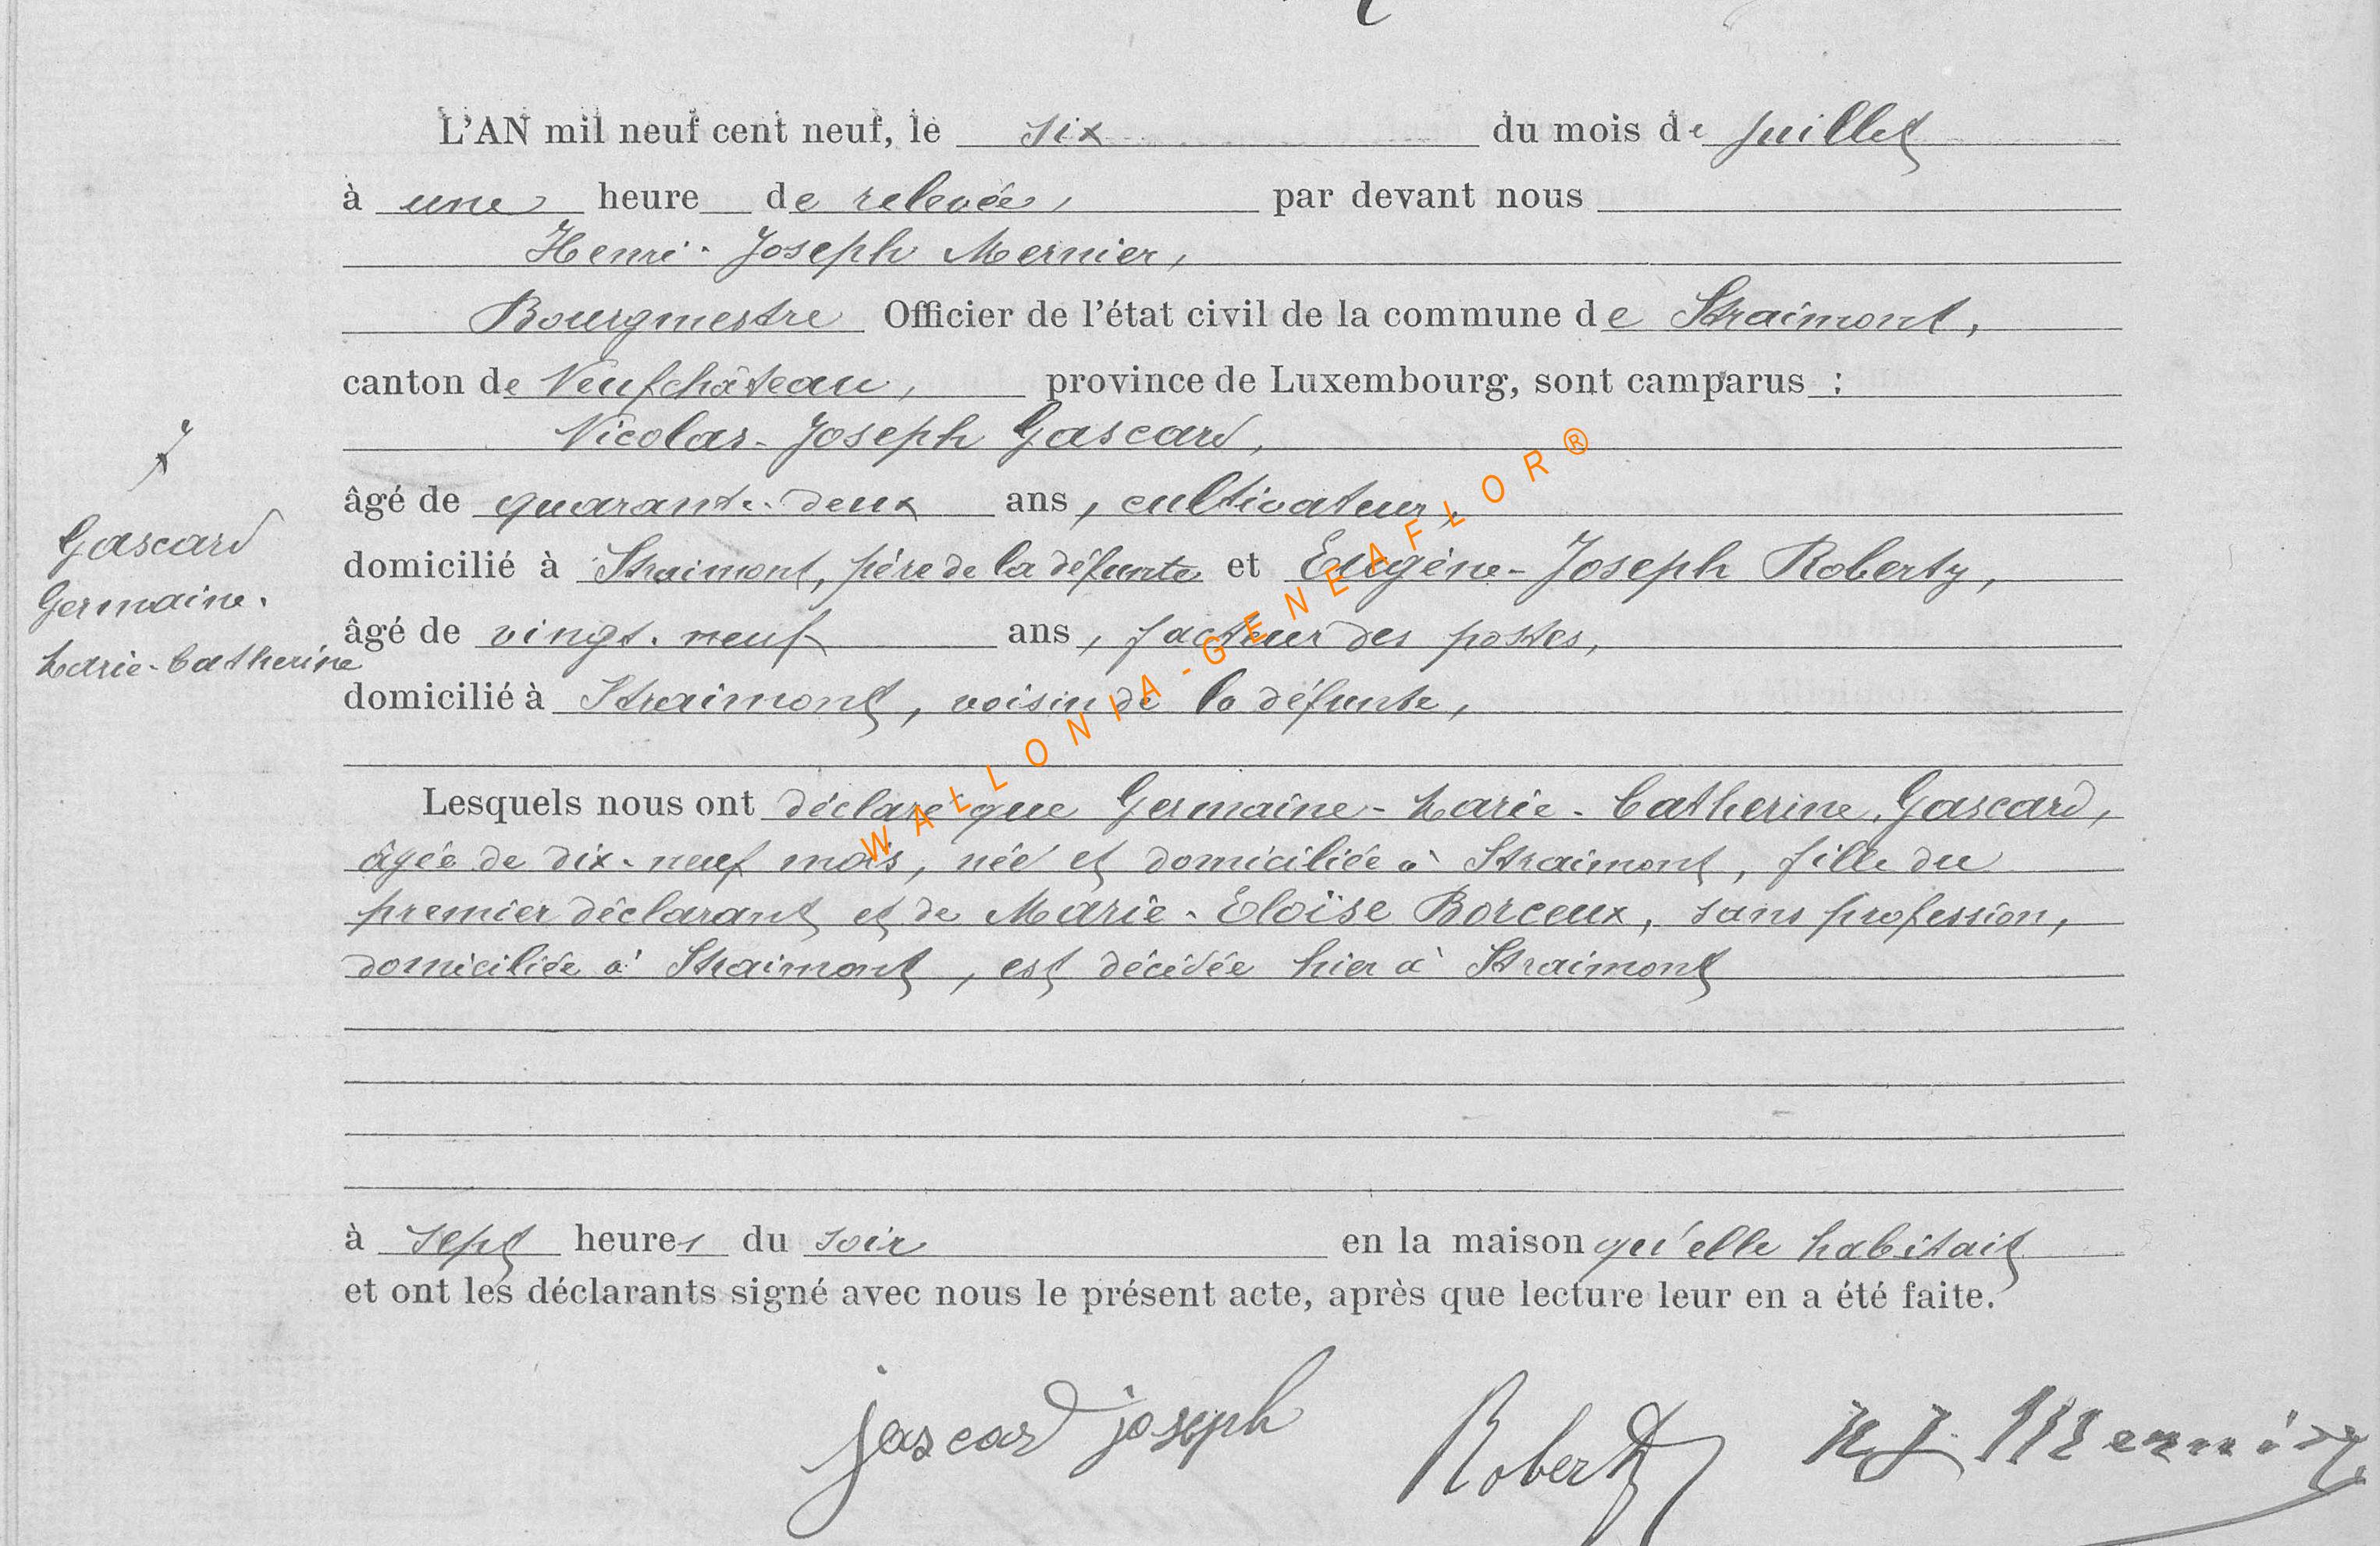 L'AN mil neuf cent neuf, le six du mois de juillet
à une heure de relevée, par devant nous
Henri-Joseph Mernier,
Bourgmestre Officier de l'état civil de la commune de Straimont,
canton de Neufchâteau, province de Luxembourg, sont camparus :
Nicolas-Joseph Gascard,
âgé de quarante-deux ans, cultivateur,
domicilié à Straimont, père de la défunte et Eugène-Joseph Roberty,
âgé de vingt-neuf ans, facteur des postes,
domicilié à Straimont, voisin de la défunte,
Gascard
Germaine-
Marie-Catherine
Lesquels nous ont déclaré que Germaine-Marie-Catherine Gascard,
âgée de dix-neuf mois, née et domiciliée à Straimont, fille du
premier déclarant et de Marie-Eloïse Borceux, sans profession,
domiciliée à Straimont, est décédée hier à Straimont
à sept heures du soir en la maison qu'elle habitait
et ont les déclarants signé avec nous le présent acte, après que lecture leur en a été faite.
gascard joseph Roberty H J Mernier
WALLONIA-GENEAFLOR®